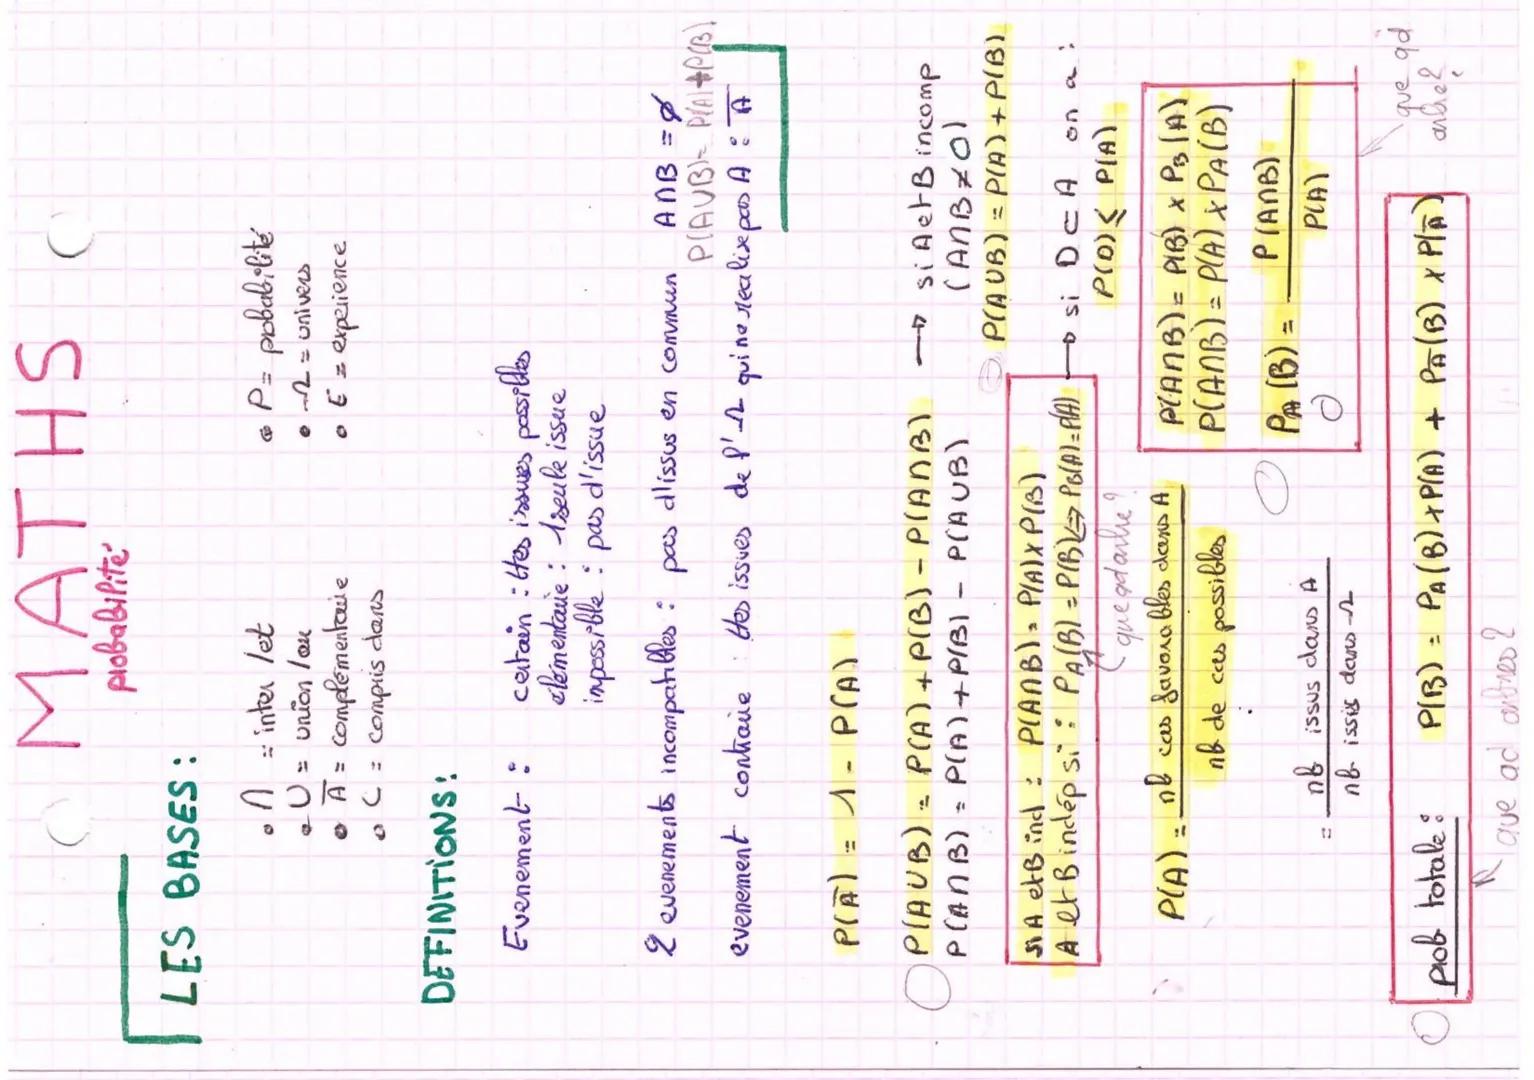 MATHS
probabilité
LES BASES :
• ∩ = inter / et
• U = union / ou
• A̅ = complémentaire
• ⊂ = compris dans
• P = probabilité
• Ω = univers
• E = experience
DEFINITIONS :
Evenement : certain : ttes issues possibles
elementaire : 1 seule issue
impossible : pas d'issue
2 evenements incompatibles : pas d'issus en commun A∩B = ∅
P(AUB) = P(A) + P(B)
evenement contraire : ttes issues de l'Ω qui ne realise pas A : A̅
P(A̅) = 1 - P(A)
P(AUB) = P(A) + P(B) - P(A∩B)
P(A∩B) = P(A) + P(B) - P(AUB)
→ si A et B incomp
(A∩B ≠ 0)
P(AUB) = P(A) + P(B)
si A et B ind : P(A∩B) = P(A) x P(B)
A et B indép si : P_A(B) = P(B) ⇔ P_B(A) = P(A)
que qd arbre ?
→ si D ⊂ A on a :
P(D) ≤ P(A)
P(A) = nb cas favorables dans A
nb de cas possibles
= nb issus dans A
nb issis dans Ω
P(A∩B) = P(B) x P_B(A)
P(A∩B) = P(A) x P_A(B)
P_A(B) = P(A∩B)
P(A)
que qd
arbre ?
prob totale : P(B) = P_A(B) x P(A) + P_A̅(B) x P(A̅)
que qd arbres ?